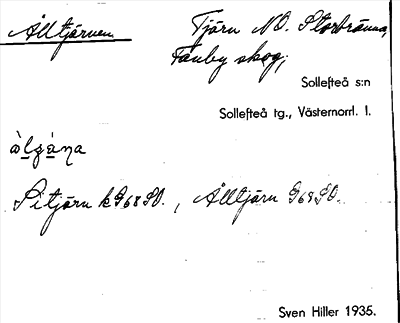 Ålltjärnen
Tjärn NO. Storbränna,
Fanby skog,
Sollefteå s:n
Sollefteå tg., Västernorrl. l.
Pitjärn k G68SO., Ålltjärn G68SO.
Sven Hiller 1935.